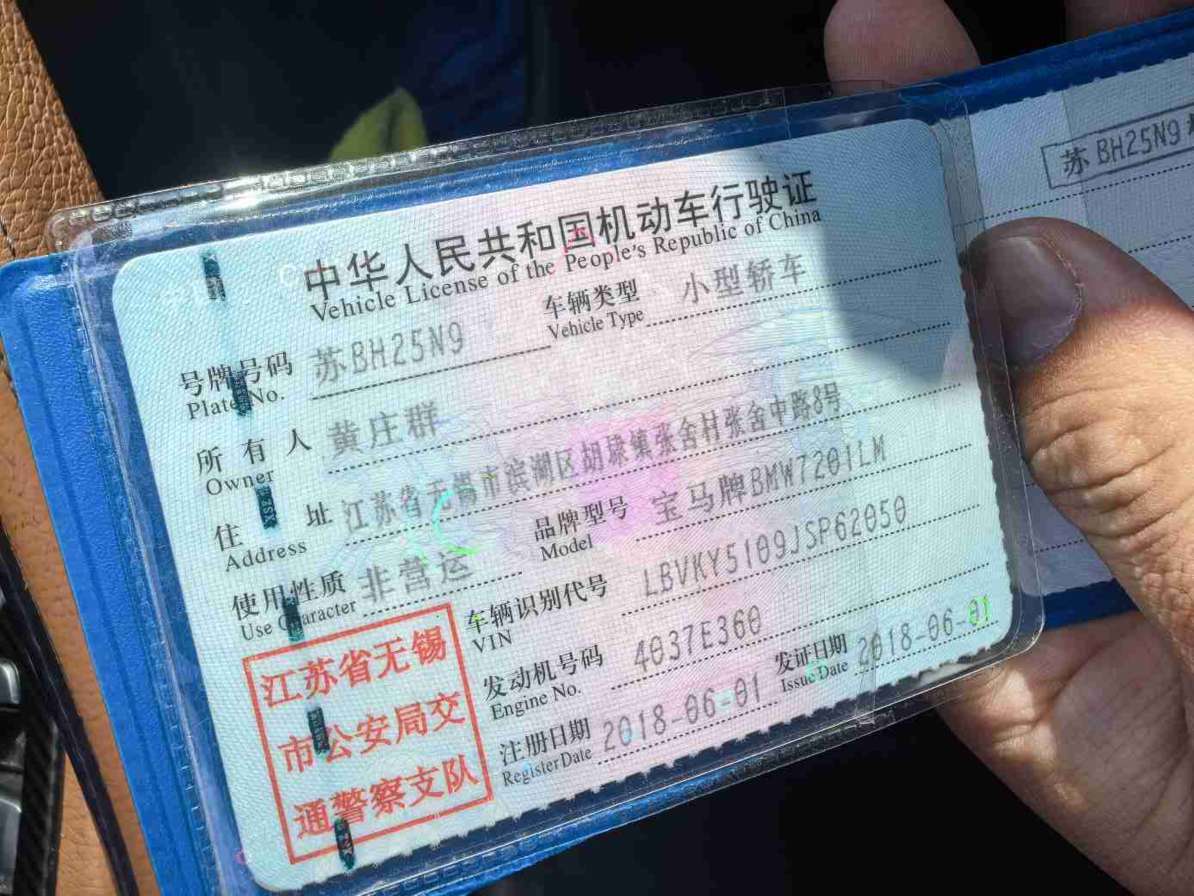 中华人民共和国机动车行驶证
Vehicle License of the People's Republic of China
号牌号码 苏BH25N9 车辆类型 小型轿车
Plate No. Vehicle Type
所有人 黄庄群
Owner
住址 江苏省无锡市滨湖区胡埭镇张舍村张舍中路8号
Address
使用性质 非营运 品牌型号 宝马牌BMW7201LM
Use Character Model
车辆识别代号 LBVKY5109JSP62050
VIN
发动机号码 4037E360
Engine No.
注册日期 2018-06-01 发证日期 2018-06-01
Register Date Issue Date
江苏省无锡
市公安局交
通警察支队
苏BH25N9